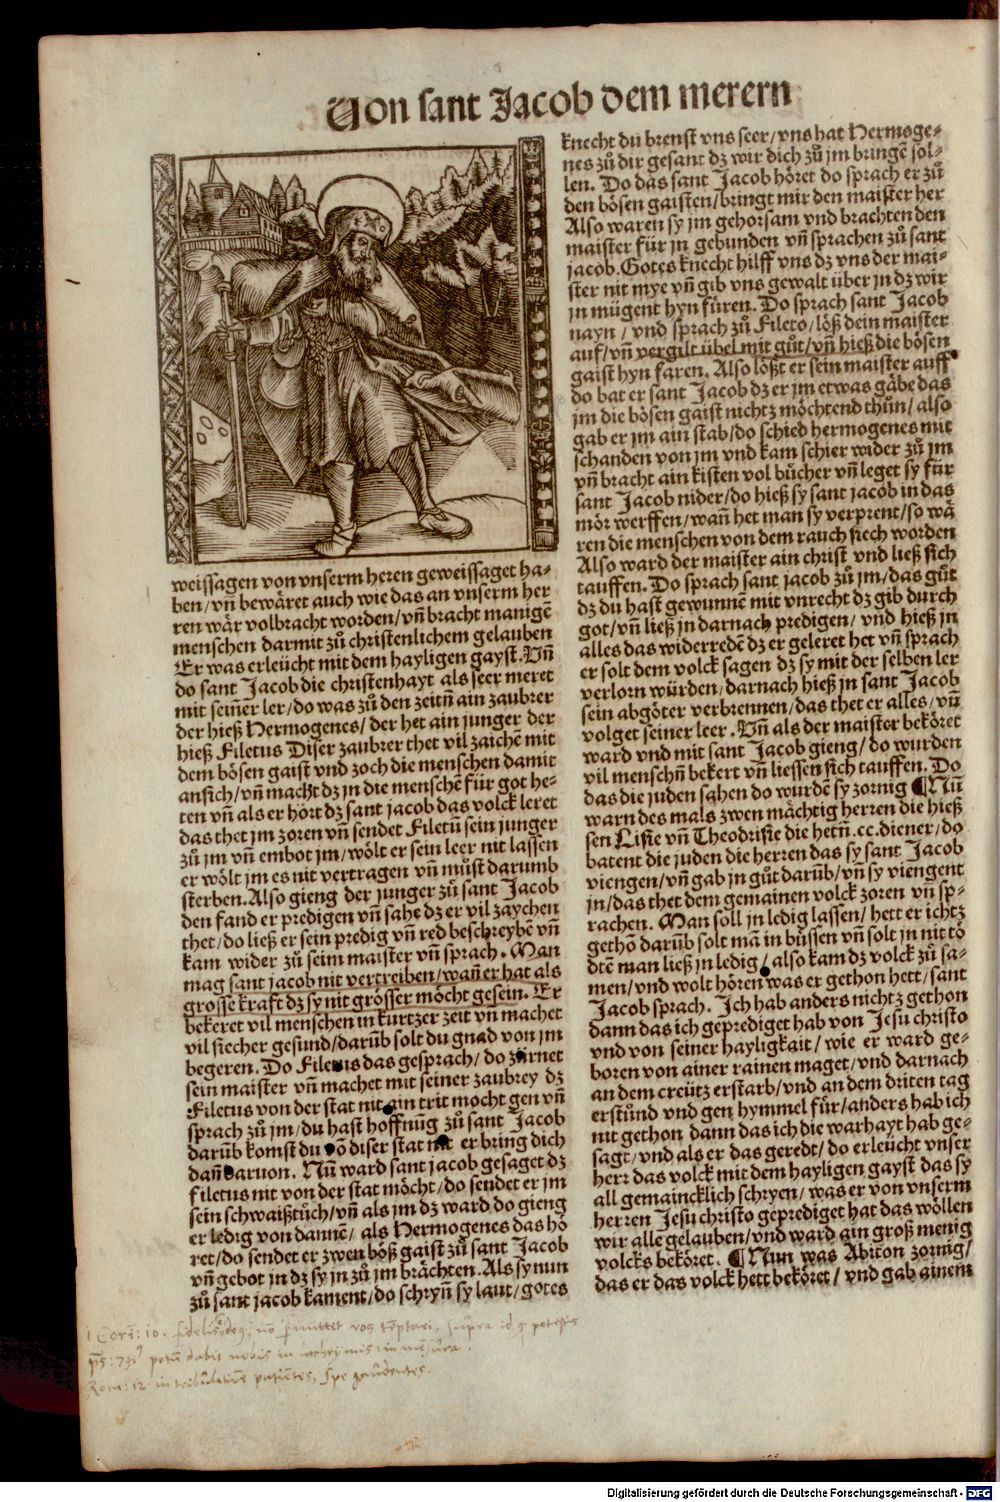 Von sant Jacob dem merern
weissagen von vnserm heren geweissaget ha-
ben/vn̄ bewäret auch wie das an vnserm her
ren wär volbracht worden/vn̄ bracht manigē
menschen darmit zů christenlichem gelauben
Er was erleücht mit dem hayligen gayst. Vn̄
do sant Jacob die christenhayt als seer meret
mit seiner ler/do was zů den zeitn̄ ain zaubrer
der hieß Hermogenes/der het ain junger der
hieß Filetus Diser zaubrer thet vil zaichē mit
dem bösen gaist vnd zoch die menschen damit
ansich/vn̄ macht dz in die menschē für got he-
ten vn̄ als er hört dz sant jacob das volck leret
das thet jm zoren vn̄ sendet Filetū sein junger
zů jm vn̄ embot jm/wölt er sein leer nit lassen
er wölt jm es nit vertragen vn̄ můst darumb
sterben. Also gieng der junger zů sant Jacob
den fand er predigen vn̄ sahe dz er vil zaychen
thet/do ließ er sein predig vn̄ red beschreybē vn̄
kam wider zů seim maister vn̄ sprach. Man
mag sant jacob nit vertreiben/wan̄ er hat als
grosse kraft dz sy nit grösser möcht gesein. Er
bekeret vil menschen in kurtzer zeit vn̄ machet
vil siecher gesund/darūb solt du gnad von jm
begeren. Do Filetus das gesprach/do zürnet
sein maister vn̄ machet mit seiner zaubrey dz
Filetus von der stat nit ain trit mocht gen vn̄
sprach zů jm/du hast hoffnūg zů sant Jacob
darūb komst du vō diser stat nit er bring dich
dan̄ daruon. Nū ward sant jacob gesaget dz
filetus nit von der stat möcht/do sendet er jm
sein schwaißtůch/vn̄ als jm dz ward do gieng
er ledig von dannē/ als Hermogenes das hö
ret/do sendet er zwen böß gaist zů sant Jacob
vn̄ gebot in dz sy jn zů jm brächten. Als sy nun
zů sant jacob kament/do schryn̄ sy laut/gotes
knecht du brenst vns seer/vns hat Hermoge-
nes zů dir gesant dz wir dich zů jm bringē sol-
len. Do das sant Jacob höret do sprach er zů
den bösen gaisten/bringt mir den maister her
Also waren sy jm gehorsam vnd brachten den
maister für jn gebunden vn̄ sprachen zů sant
jacob. Gotes knecht hilff vns dz vns der mai-
ster nit mye vn̄ gib vns gewalt über in dz wir
jn mügent hyn füren. Do sprach sant Jacob
nayn/vnd sprach zů Fileto/löß dein maister
auf/vn̄ vergilt übel mit gůt/vn̄ hieß die bösen
gaist hyn faren. Also lößt er sein maister auff
do bat er sant Jacob dz er jm etwas gäbe das
jm die bösen gaist nichtz möchtend thůn/also
gab er jm ain stab/do schied hermogenes mit
schanden von jm vnd kam schier wider zů jm
vn̄ bracht ain kisten vol bücher vn̄ leget sy für
sant Jacob nider/do hieß sy sant jacob in das
mör werffen/wan̄ het man sy verprent/so wä
ren die menschen von dem rauch siech worden
Also ward der maister ain christ vnd ließ sich
tauffen. Do sprach sant jacob zů jm/das gůt
dz du hast gewunnē mit vnrecht dz gib durch
got/vn̄ ließ jn darnach predigen/vnd hieß jn
alles das widerredē dz er geleret het vn̄ sprach
er solt dem volck sagen dz sy mit der selben ler
verlorn würden/darnach hieß jn sant Jacob
sein abgöter verbrennen/das thet er alles/vn̄
volget seiner leer. Vn̄ als der maister bekōret
ward vnd mit sant Jacob gieng/do wurden
vil menschn̄ bekert vn̄ liessen sich tauffen. Do
das die juden sahen do wurdē sy zornig ¶Nū
warn des mals zwen mächtig herren die hieß
sen Lisie vn̄ Theodrisie die hetn̄ .cc. diener/do
batent die juden die herren das sy sant Jacob
viengen/vn̄ gab jn gůt darūb/vn̄ sy viengent
jn/das thet dem gemainen volck zoren vn̄ sp-
rachen. Man soll jn ledig lassen/hett er ichtz
gethō darūb solt mā in büssen vn̄ solt jn nit tö
dtē man ließ jn ledig/also kam dz volck zů sa-
men/vnd wolt hören was er gethon hett/sant
Jacob sprach. Ich hab anders nichtz gethon
dann das ich geprediget hab von Jesu christo
vnd von seiner hayligkait/wie er ward ge-
boren von ainer rainen maget/vnd darnach
an dem creütz erstarb/vnd an dem driten tag
erstůnd vnd gen hymmel für/anders hab ich
nit gethon dann das ich die warhayt hab ge-
sagt/vnd als er das geredt/do erleücht vnser
herr das volck mit dem hayligen gayst das sy
all gemaincklich schryen/was er von vnserm
herren Jesu christo geprediget hat das wöllen
wir alle gelauben/vnd ward ain groß menig
volcks beköret. ¶Nun was Abiton zornig/
das er das volck hett beköret/vnd gab ainem
1 Cori: 10. fidelis deus, nō permittet vos tēptari, supra id q potestis
ps: 79 potū dabis nobis in lachrymis: in mēsura.
Rom: 12. in tribulatiōe patiētes, spe gaudentes.
Digitalisierung gefördert durch die Deutsche Forschungsgemeinschaft - DFG